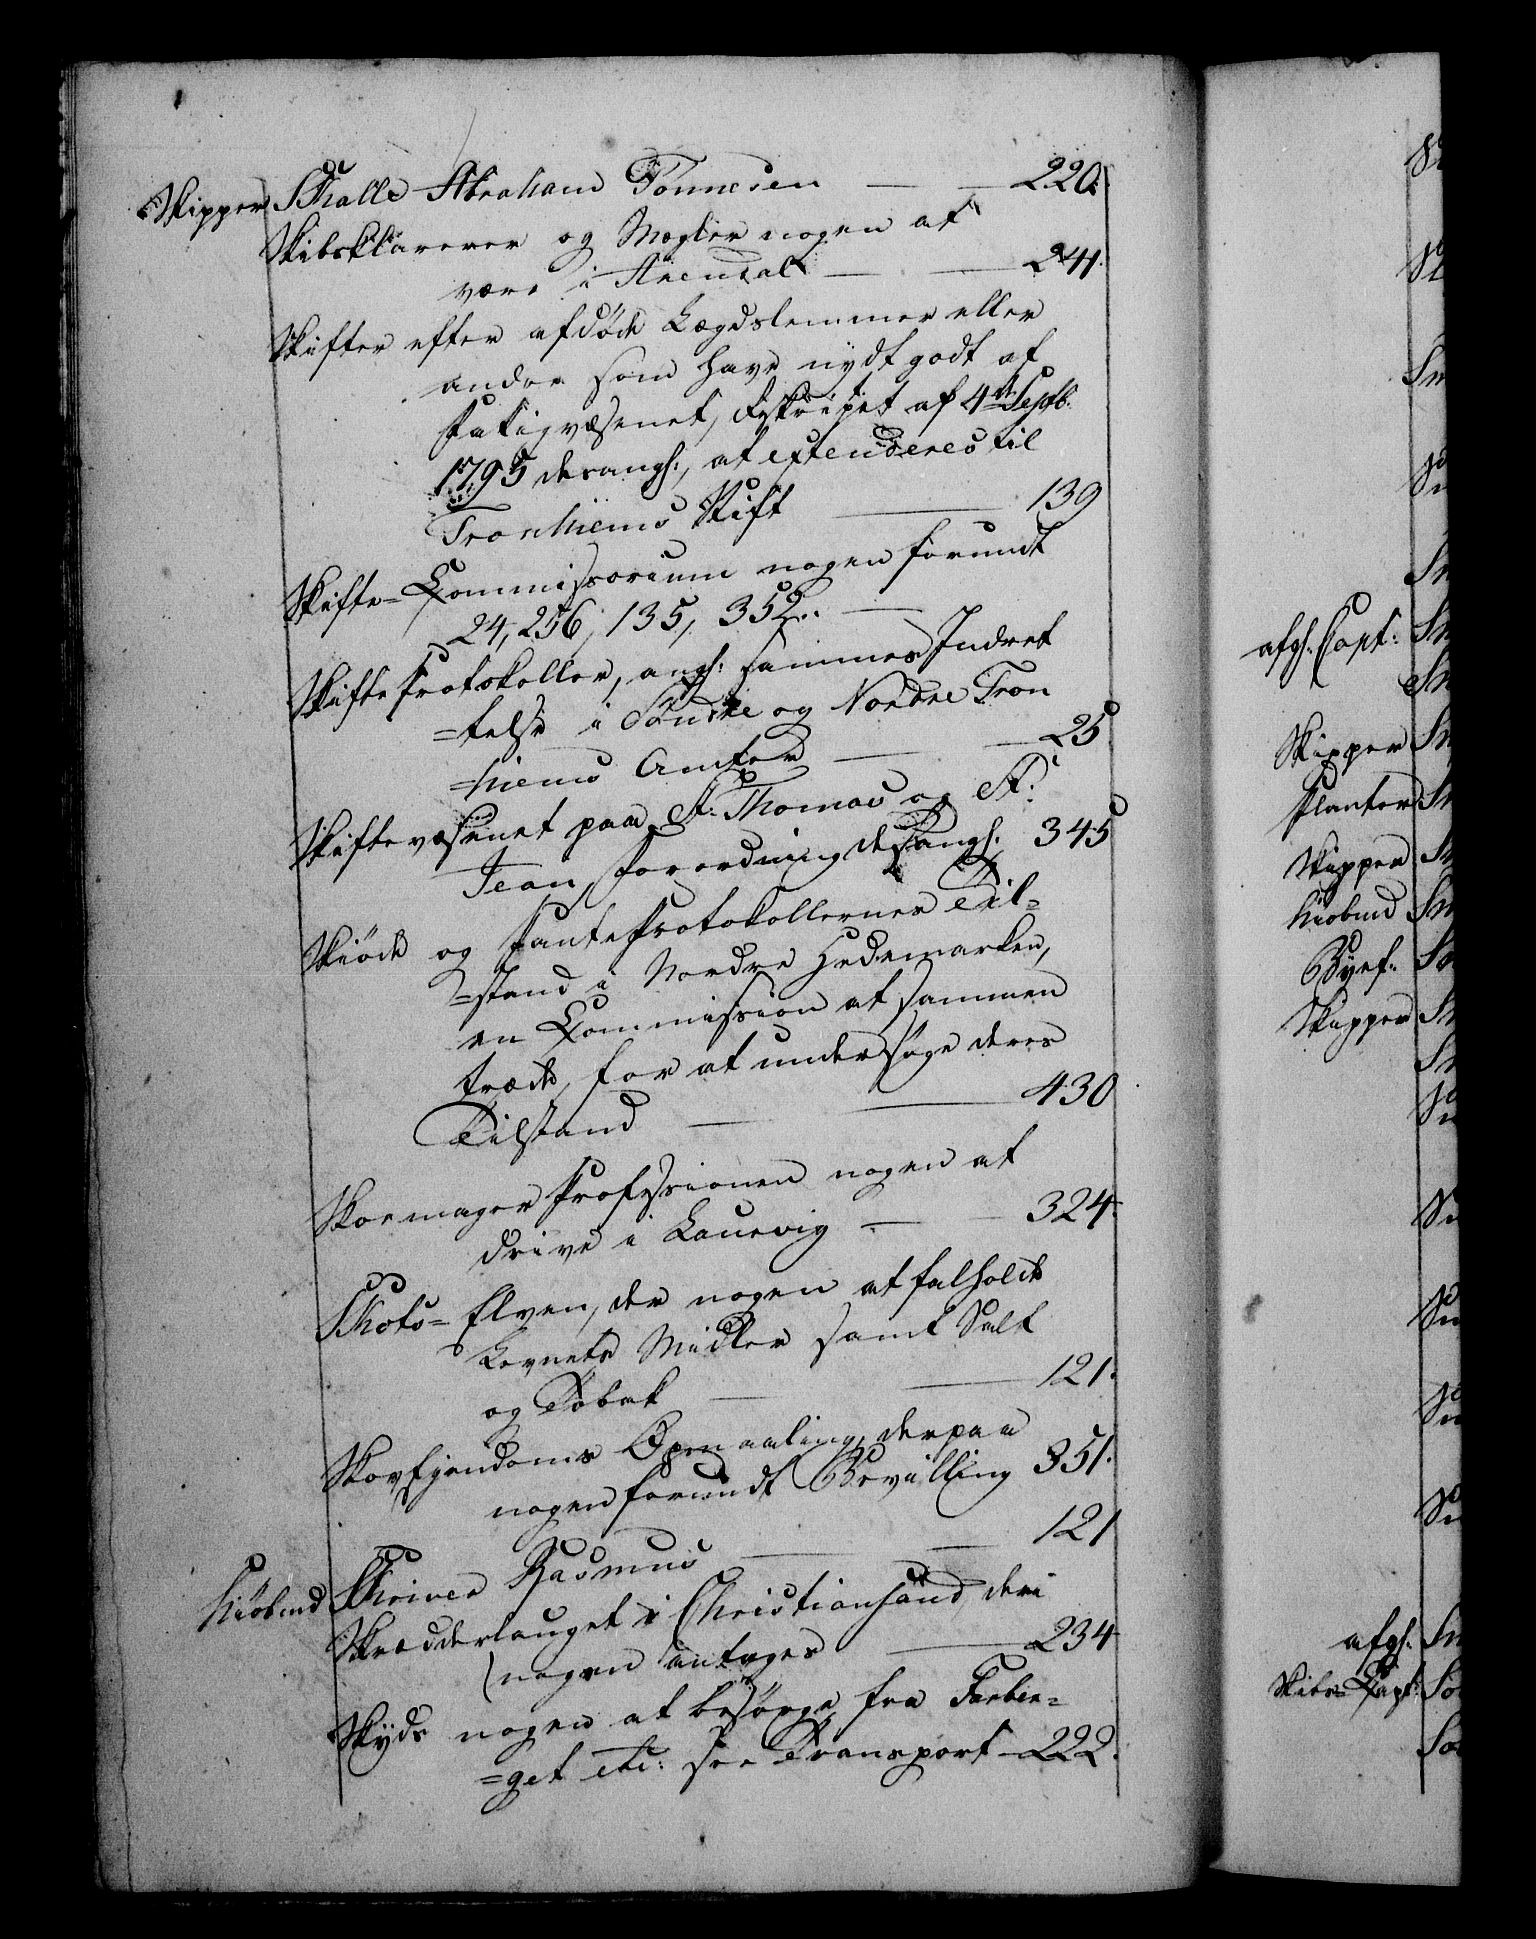 Skipper Skalle Abraham Tönnesen — — 220.
Skibsklarerer og Mægler nogen at
være i Arendal — — 241.
Skifter efter afdöde Lægdslemmer eller
andre som have nydt godt af
Fatigvæsenet, Rskriptet af 4de Septb.
1795 desangl:, at extenderes til
Tronhiems Stift — 139
Skifte= Commissorium nogen forundt
24, 256, 135, 352. —
Skifte Protokoller, angl: sammes Indret
=telse i Söndre og Nordre Tron
=hiems Amter — — 25
Skiftevæsenet paa St. Thomas og St:
Jean, Forordning desangl: 345
Skiöde og PanteProtokollernes Til=
=stand i Nordre Hedemarken,
en Commission at sammen
træde, for at undersöge deres
Tilstand — — 430
Skoemager Professionen nogen at
drive i Laurvig — — 324.
Skots= Elven, der nogen at falholde
Levnets Midler samt Salt
og Tobak — — 121.
Skovejendoms Opmaaling, derpaa
nogen forundt Bevilling 351.
Kiöbmd Skriver Rasmus — — 121
Skrædderlauget i Christiansand, deri
nogen antages — 234
Skyds nogen at besörge fra Farber=
=get etc: see Transport — 222.
afgl: Capt:
Skipper
Planter
Skipper
Kiöbmd
Byef:
Skipper
afgl:
Skibs= Capt: